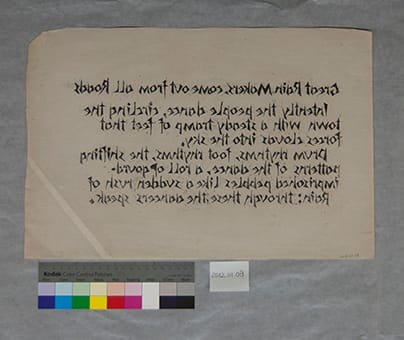 Great Rain Makers, come out from all Roads
Intently the people dance, circling the
town with a steady tramp of feet that
forces clouds into the sky.
Drum rhythms, foot rhythms, the shifting
patterns of the dance, a roll of gourd-
imprisoned pebbles like a sudden rush of
Rain: through these the dancers speak.
Kodak Color Control Patches